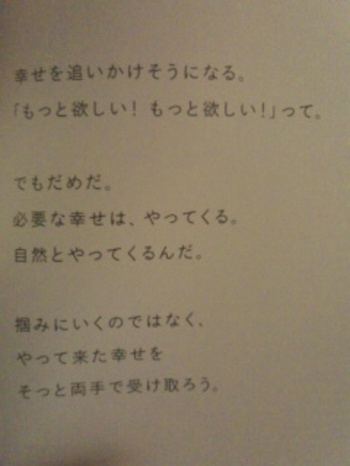 幸せを追いかけそうになる。
「もっと欲しい! もっと欲しい!」って。
でもだめだ。
必要な幸せは、やってくる。
自然とやってくるんだ。
掴みにいくのではなく、
やって来た幸せを
そっと両手で受け取ろう。